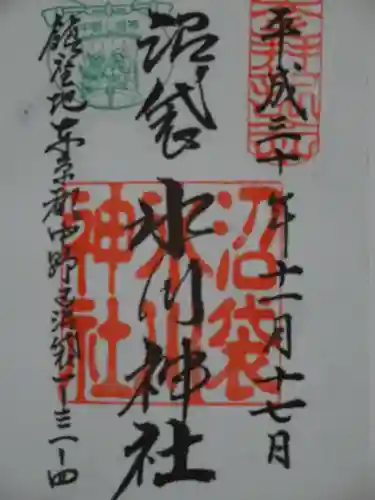 平成三十年十一月十七日
沼袋
氷川神社
鎮座地東京都中野区沼袋一ー三一ー四
沼袋
氷川
神社